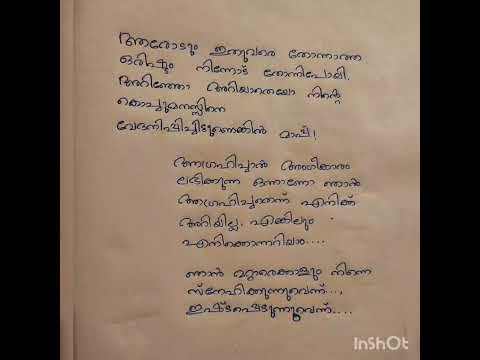 ആരോടും ഇതുവരെ തോന്നാത്ത
ഒരിഷ്ടം നിന്നോട് തോന്നിപോയി.
അറിഞ്ഞോ അറിയാതെയോ നിന്റെ
കൊച്ചുമനസ്സിനെ
വേദനിപ്പിച്ചിട്ടുണ്ടെങ്കിൽ മാപ്പ്!
ആഗ്രഹിച്ചാൽ അംഗീകാരം
ലഭിക്കുന്ന ഒന്നാണോ ഞാൻ
ആഗ്രഹിച്ചതെന്ന് എനിക്ക്
അറിയില്ല. എങ്കിലും
എനിക്കൊന്നറിയാം....
ഞാൻ മറ്റാരെക്കാളും നിന്നെ
സ്നേഹിക്കുന്നുവെന്ന്...,
ഇഷ്ടപ്പെടുന്നുവെന്ന്....
InShOt